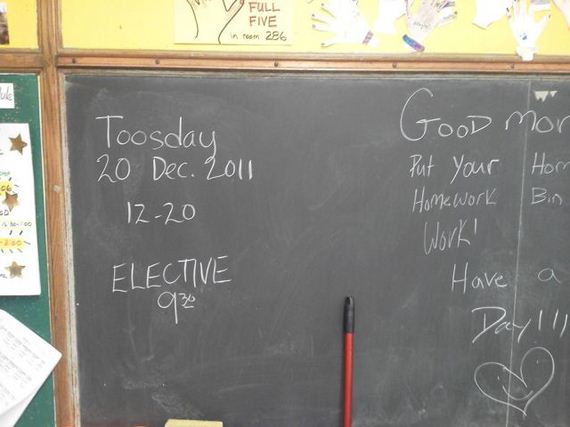 FULL
FIVE
in room 286
Toosday
20 Dec. 2011
12-20
ELECTIVE
9:30
GOOD mor
Put Your Hom
Homework Bin
Work!
Have a
Day!!!